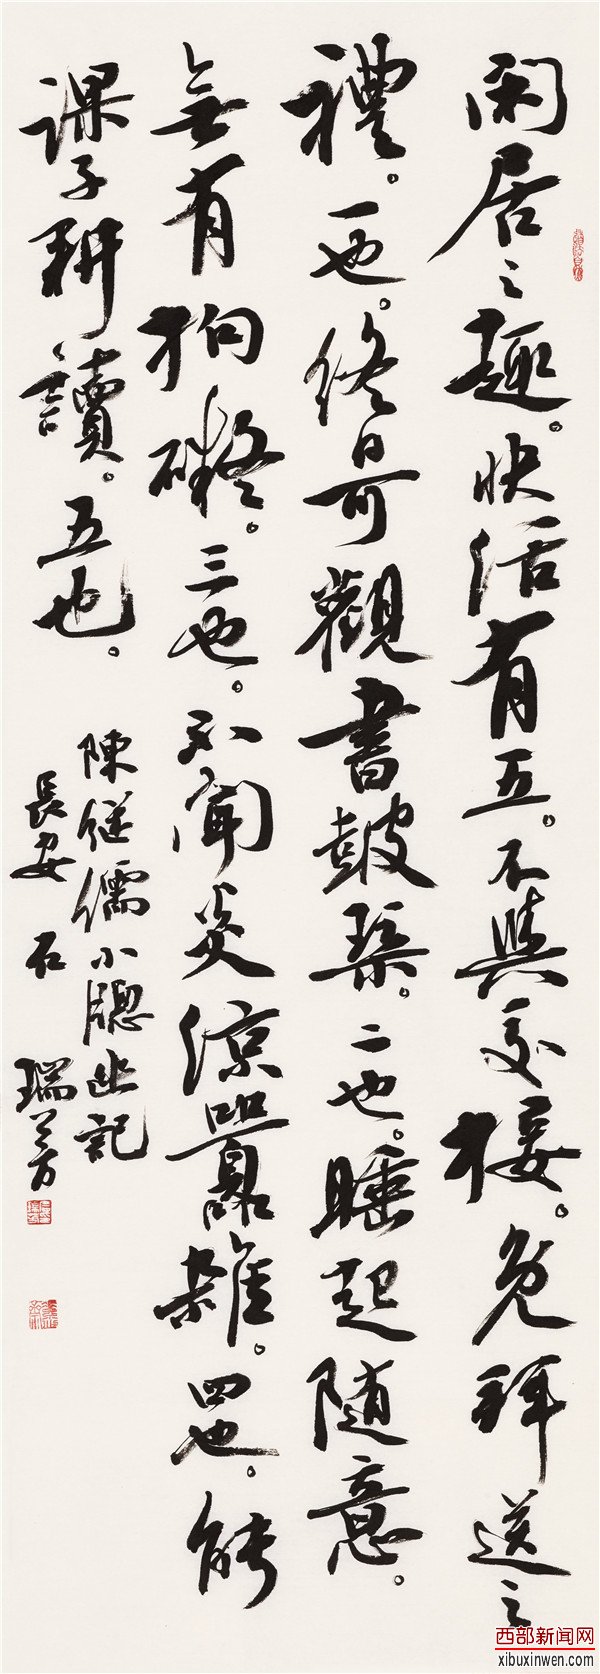 闲居之趣。快活有五。不與交接。免拜送之
禮。一也。終日可觀書鼓琴。二也。睡起随意。
無有拘礙。三也。不聞炎凉囂雜。四也。能
課子耕讀。五也。
陳继儒小牕幽記
長安 石瑞芳
西部新闻网
xibuxinwen.com